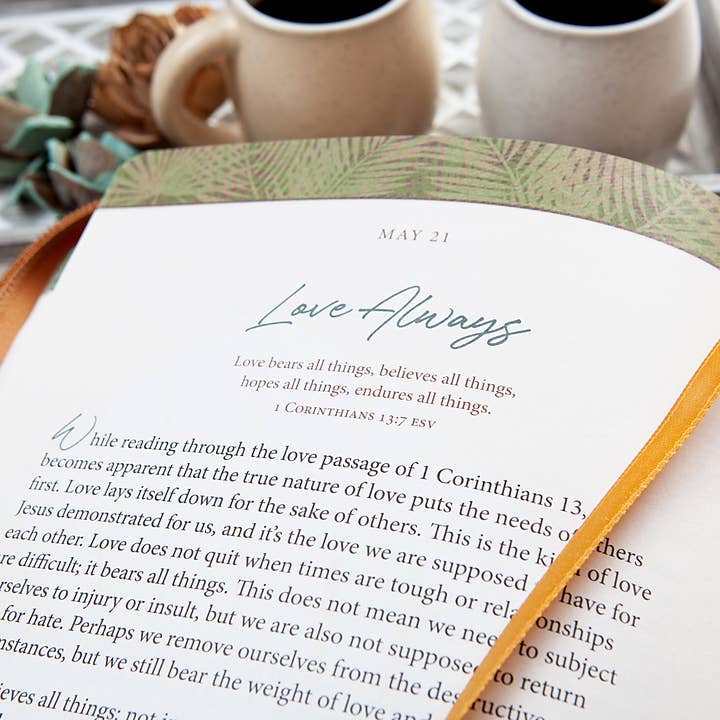 MAY 21
Love Always
Love bears all things, believes all things,
hopes all things, endures all things.
1 CORINTHIANS 13:7 ESV
While reading through the love passage of 1 Corinthians 13,
becomes apparent that the true nature of love puts the needs of others
first. Love lays itself down for the sake of others. This is the kind of love
Jesus demonstrated for us, and it's the love we are supposed have for
each other. Love does not quit when times are tough or relationships
difficult; it bears all things. This does not mean we need to subject
to injury or insult, but we are also not supposed to return
for hate. Perhaps we remove ourselves from the destructive
but we still bear the weight of love and
all things; not